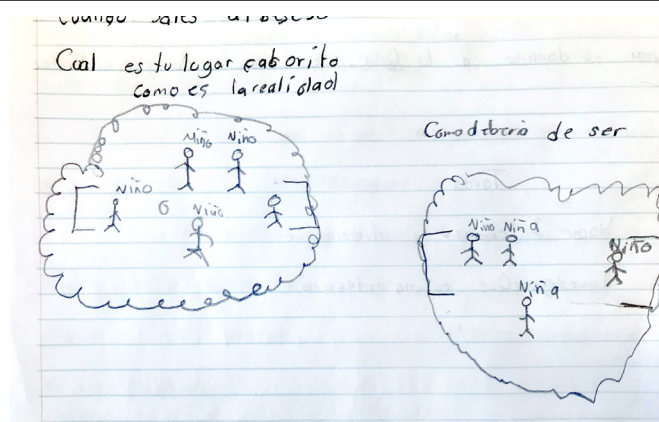 Cual es tu lugar faborito
como es la realidad
Niño Niño
Niño
Niño
Como deberia de ser
Niño Niña
Niño
Niña